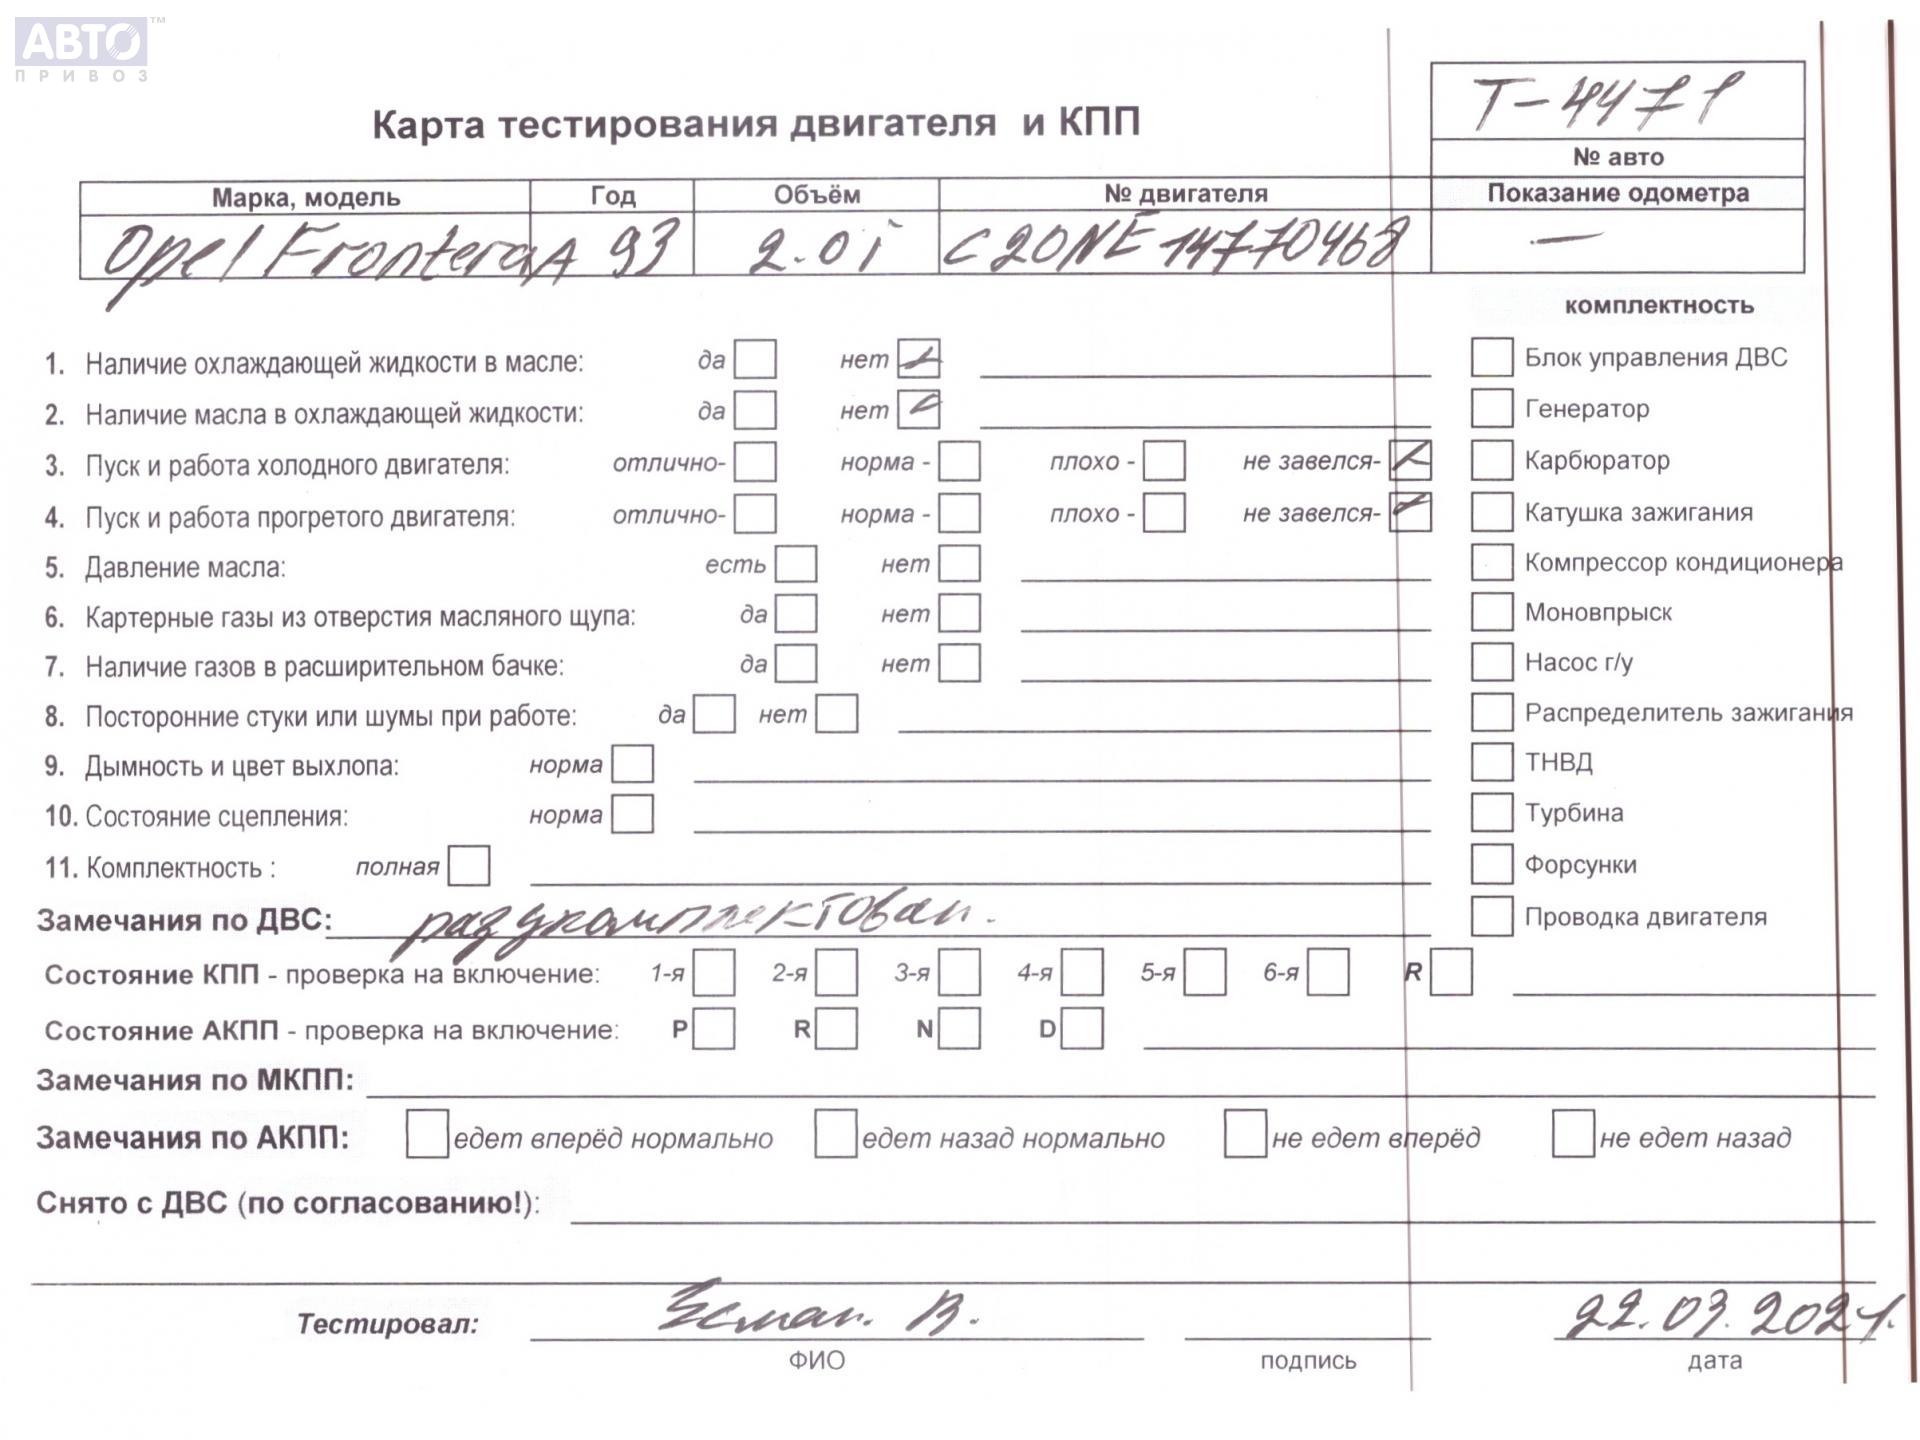 АВТО™
ПРИВОЗ
Т-4471
Карта тестирования двигателя и КПП
№ авто
Марка, модель Год Объём № двигателя Показание одометра
Opel Frontera A 93 2.0i C20NE 14770468 —
комплектность
1. Наличие охлаждающей жидкости в масле: да нет Блок управления ДВС
2. Наличие масла в охлаждающей жидкости: да нет Генератор
3. Пуск и работа холодного двигателя: отлично- норма - плохо - не завелся- Карбюратор
4. Пуск и работа прогретого двигателя: отлично- норма - плохо - не завелся- Катушка зажигания
5. Давление масла: есть нет Компрессор кондиционера
6. Картерные газы из отверстия масляного щупа: да нет Моновпрыск
7. Наличие газов в расширительном бачке: да нет Насос г/у
8. Посторонние стуки или шумы при работе: да нет Распределитель зажигания
9. Дымность и цвет выхлопа: норма ТНВД
10. Состояние сцепления: норма Турбина
11. Комплектность : полная Форсунки
Замечания по ДВС: разукомплектован. Проводка двигателя
Состояние КПП - проверка на включение: 1-я 2-я 3-я 4-я 5-я 6-я R
Состояние АКПП - проверка на включение: P R N D
Замечания по МКПП:
Замечания по АКПП: едет вперёд нормально едет назад нормально не едет вперёд не едет назад
Снято с ДВС (по согласованию!):
Тестировал: В. 22.03.2021.
ФИО подпись дата